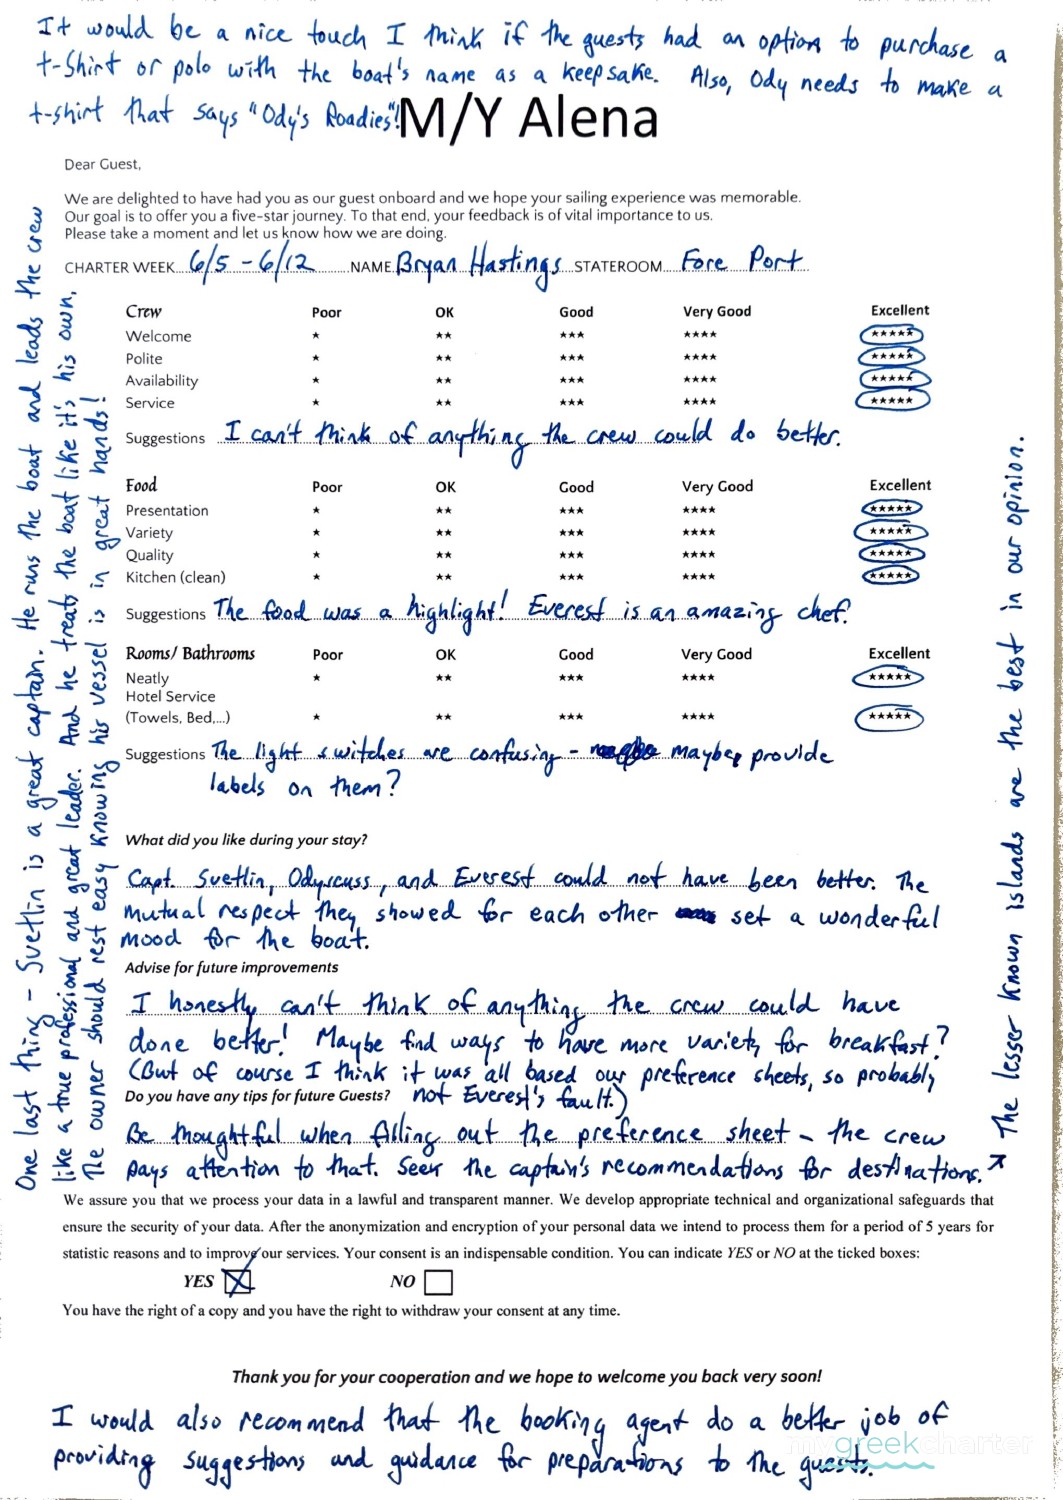 It would be a nice touch I think if the guests had an option to purchase a
t-shirt or polo with the boat's name as a keepsake. Also, Ody needs to make a
t-shirt that says "Ody's Roadies"!
M/Y Alena
Dear Guest,
We are delighted to have had you as our guest onboard and we hope your sailing experience was memorable.
Our goal is to offer you a five-star journey. To that end, your feedback is of vital importance to us.
Please take a moment and let us know how we are doing.
CHARTER WEEK 6/5 - 6/12 NAME Bryan Hastings STATEROOM Fore Port
Crew Poor OK Good Very Good Excellent
Welcome * ** *** **** *****
Polite * ** *** **** *****
Availability * ** *** **** *****
Service * ** *** **** *****
Suggestions I can't think of anything the crew could do better.
Food Poor OK Good Very Good Excellent
Presentation * ** *** **** *****
Variety * ** *** **** *****
Quality * ** *** **** *****
Kitchen (clean) * ** *** **** *****
Suggestions The food was a highlight! Everest is an amazing chef.
Rooms/ Bathrooms Poor OK Good Very Good Excellent
Neatly * ** *** **** *****
Hotel Service
(Towels, Bed,...) * ** *** **** *****
Suggestions The light switches are confusing - maybe provide
labels on them?
What did you like during your stay?
Capt. Svetlin, Odyscuss, and Everest could not have been better. The
mutual respect they showed for each other set a wonderful
mood for the boat.
Advise for future improvements
I honestly can't think of anything the crew could have
done better! Maybe find ways to have more variety for breakfast?
(But of course I think it was all based our preference sheets, so probably
not Everest's fault.)
Do you have any tips for future Guests?
Be thoughtful when filling out the preference sheet - the crew
pays attention to that. Seek the captain's recommendations for destinations.
The lesser known islands are the best in our opinion.
One last thing - Svetlin is a great captain. He runs the boat and leads the crew
like a true professional and great leader. And he treats the boat like it's his own.
The owner should rest easy knowing his vessel is in great hands!
We assure you that we process your data in a lawful and transparent manner. We develop appropriate technical and organizational safeguards that
ensure the security of your data. After the anonymization and encryption of your personal data we intend to process them for a period of 5 years for
statistic reasons and to improve our services. Your consent is an indispensable condition. You can indicate YES or NO at the ticked boxes:
YES NO
You have the right of a copy and you have the right to withdraw your consent at any time.
Thank you for your cooperation and we hope to welcome you back very soon!
I would also recommend that the booking agent do a better job of
providing suggestions and guidance for preparations to the guests.
mygreekcharter